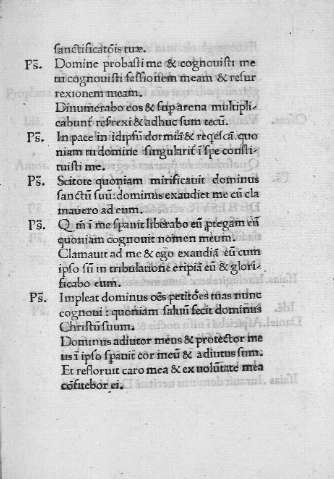 sanctificatõis tuæ.
Ps̃. Domine probasti me & cognouisti me
tu cognouisti sessionem meam & resur
rexionem meam.
Dinumerabo eos & sup arena multipli-
cabunt̃ resrexi & adhuc sum tecũ.
Ps̃. In pace in idipsũ dormiã & reqescã. quo
niam tu domine singularit̃ ĩ spe consti-
tuisti me.
Ps̃. Scitote quoniam mirificauit dominus
sanctũ suũ: dominus exaudiet me cũ cla
mauero ad eum.
Ps̃. Q m̃ ĩ me spauit liberabo eũ ptegam eũ
quoniam cognouit nomen meum.
Clamauit ad me & ego exaudiã eũ cum
ipso sũ in tribulatione eripiã eũ & glori-
ficabo eum.
Ps̃. Impleat dominus oẽs petitões tuas nunc
cognoui: quoniam saluũ fecit dominus
Christũ suum.
Dominus adiutor meus & protector me
us ĩ ipso spauit cor meũ & adiutus sum.
Et refloruit caro mea & ex volũtate mea
cõfitebor ei.